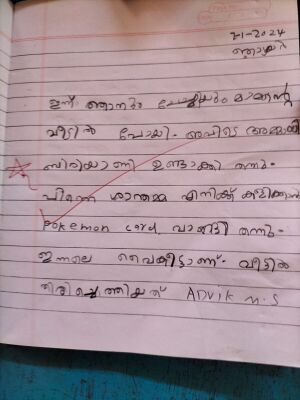 7-1-2024
ഞായർ
ഇന്ന് ഞാനും ചേച്ചിയും മാമന്റെ
വീട്ടിൽ പോയി. അവിടെ അമ്മായി
ബിരിയാണി ഉണ്ടാക്കി തന്നു.
പിന്നെ ശാന്തമ്മ എനിക്ക് കളിക്കാൻ
Pokemon card വാങ്ങി തന്നു.
ഇന്നലെ വൈകീട്ടാണ് വീട്ടിൽ
തിരിച്ചെത്തിയത് ADVIK M.S